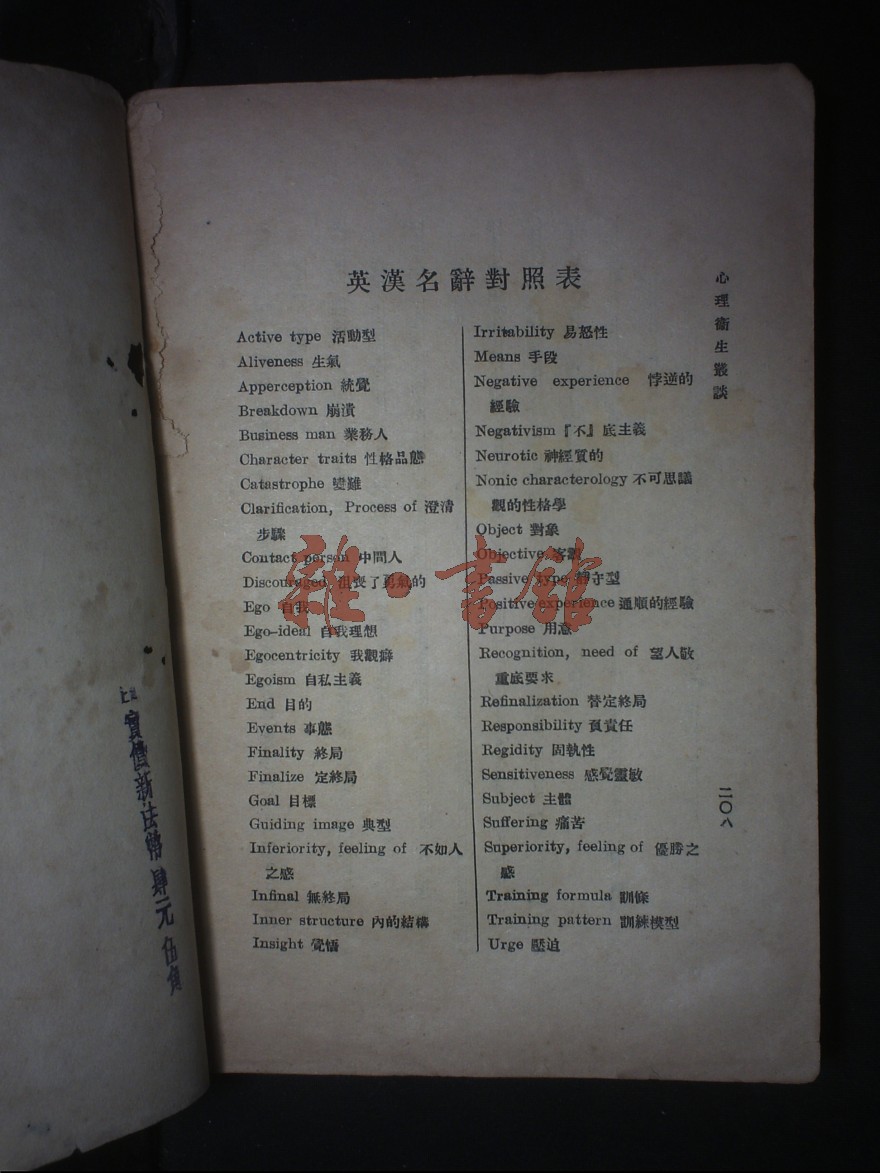 英漢名辭對照表
Active type 活動型
Aliveness 生氣
Apperception 統覺
Breakdown 崩潰
Business man 業務人
Character traits 性格品態
Catastrophe 變難
Clarification, Process of 澄清
步驟
Contact person 中間人
Discouraged 沮喪了勇氣的
Ego 自我
Ego-ideal 自我理想
Egocentricity 我觀癖
Egoism 自私主義
End 目的
Events 事態
Finality 終局
Finalize 定終局
Goal 目標
Guiding image 典型
Inferiority, feeling of 不如人
之感
Infinal 無終局
Inner structure 內的結構
Insight 覺悟
Irritability 易怒性
Means 手段
Negative experience 悖逆的
經驗
Negativism『不』底主義
Neurotic 神經質的
Nonic characterology 不可思議
觀的性格學
Object 對象
Objective 客觀
Passive type 靜守型
Positive experience 通順的經驗
Purpose 用意
Recognition, need of 望人敬
重底要求
Refinalization 替定終局
Responsibility 負責任
Regidity 固執性
Sensitiveness 感覺靈敏
Subject 主體
Suffering 痛苦
Superiority, feeling of 優勝之
感
Training formula 訓條
Training pattern 訓練模型
Urge 壓迫
心理衞生叢談
二〇八
實價新法幣肆元伍角
雜·書館